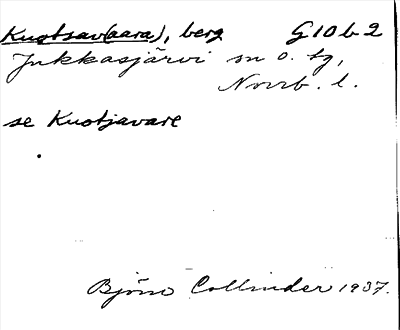 Kuotsav(aara), berg G10b2
Jukkasjärvi sn o. tg,
Norrb. l.
se Kuotjavare
Björn Collinder 1937.